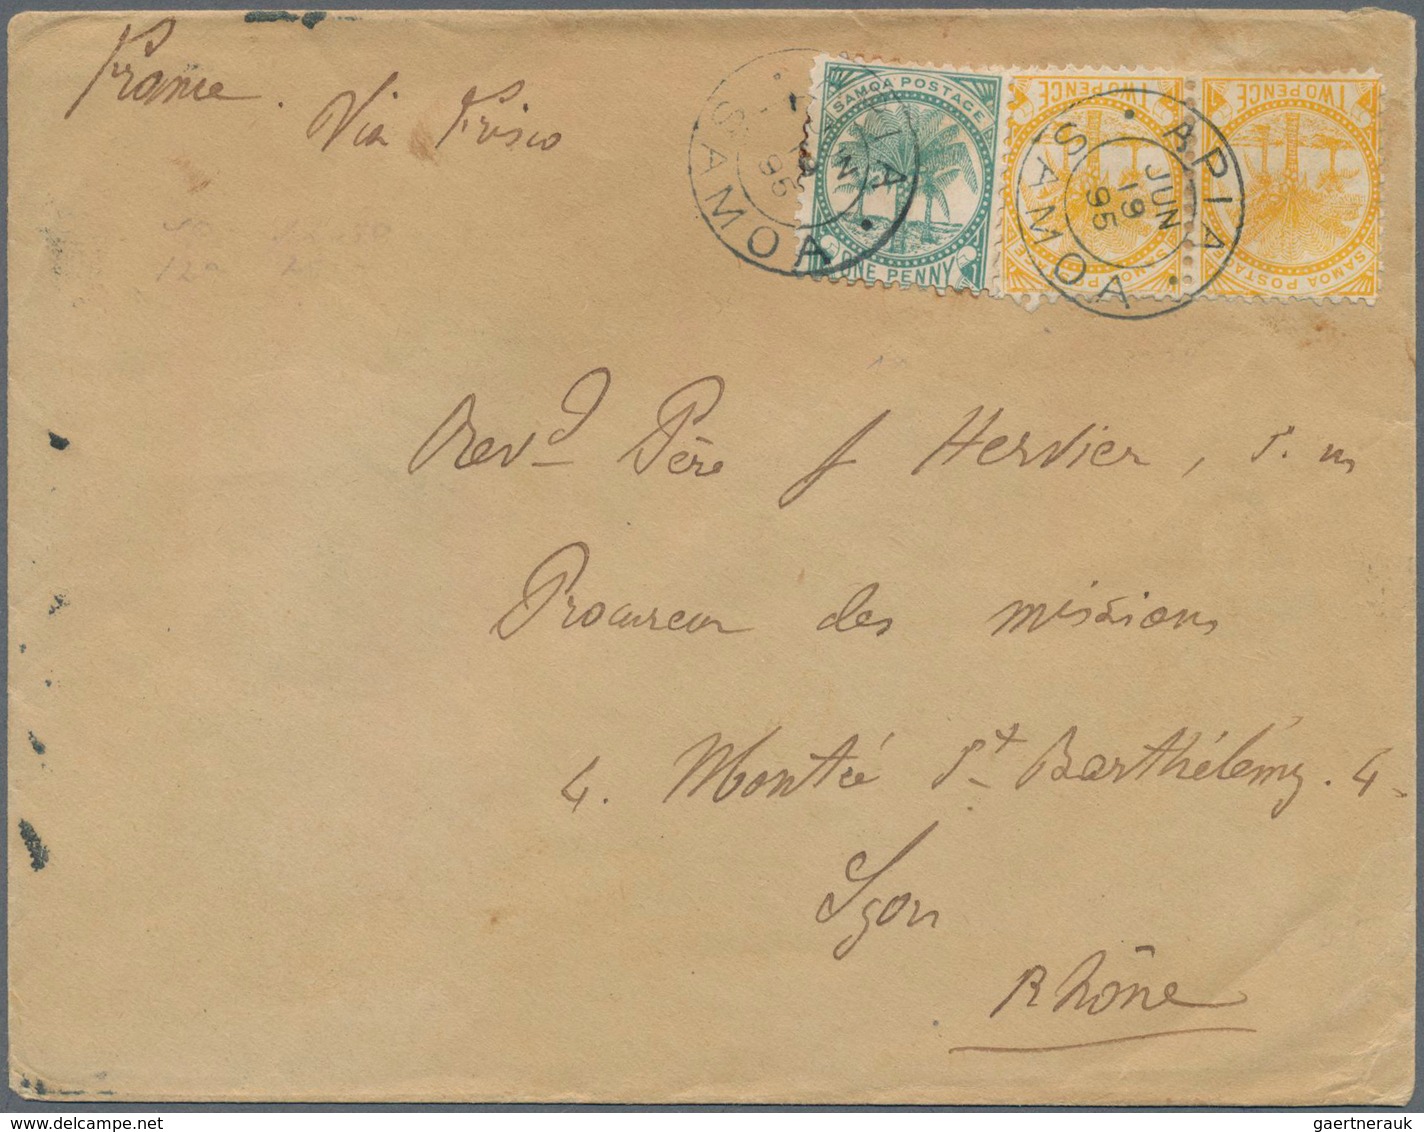 France.
Via Frisco
SAMOA POSTAGE
ONE PENNY
TWO PENCE
SAMOA POSTAGE
TWO PENCE
SAMOA POSTAGE
APIA
JUN
19
95
SAMOA
APIA
JUN
19
95
SAMOA
Revd Père J Hervier, s. m
Procureur des missions
4. Montée St Barthélémy. 4.
Lyon
Rhône
gaertnerauk @ delcampe.net